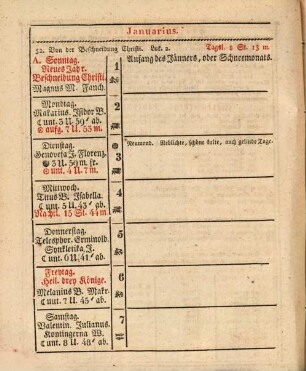 Januarius.
52. Von der Beschneidung Christi. Luk. 2. Tagsl. 8 St. 13 m.
A. Sonntag.
Neues Jahr.
Beschneidung Christi.
Magnus M. Fauch.
1
Anfang des Jänners, oder Schneemonats.
Montag.
Makarius. Isidor B.
C unt. 3 U. 59' ab.
aufg. 7 U. 53 m.
2
Dienstag.
Genovefa J. Florenz.
3 U. 59 m. fr.
unt. 4 U. 7 m.
3
Neumond. Neblichte, schöne kalte, auch gelinde Tage.
Mittwoch.
Titus B. Isabella.
C unt. 5 U. 43' ab.
Nachtl. 15 St. 44 m
4
Donnerstag.
Telesphor. Erminold.
Synkletika J.
C unt. 6 U. 41' ab.
5
Freytag.
Heil. drey Könige.
Melanius B. Makr.
C unt. 7 U. 45' ab.
6
Samstag.
Valentin. Julianus.
Kontingerna W.
C unt. 8 U. 48' ab.
7